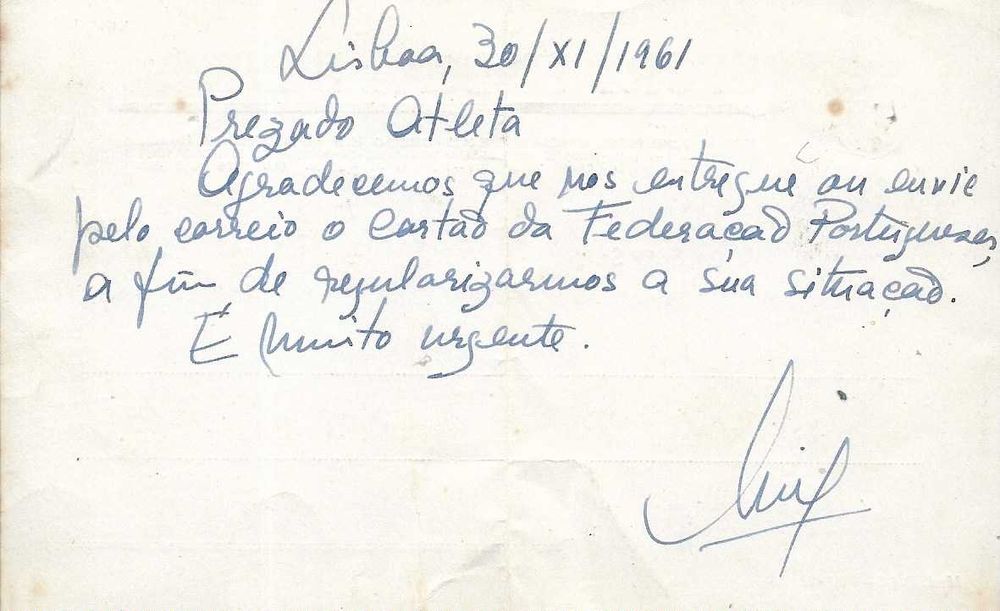 Lisboa, 30/XI/1961
Prezado Atleta
Agradecemos que nos entregue ou envie
pelo correio o cartão da Federação Portuguesa,
a fim de regularizarmos a sua situação.
É muito urgente.